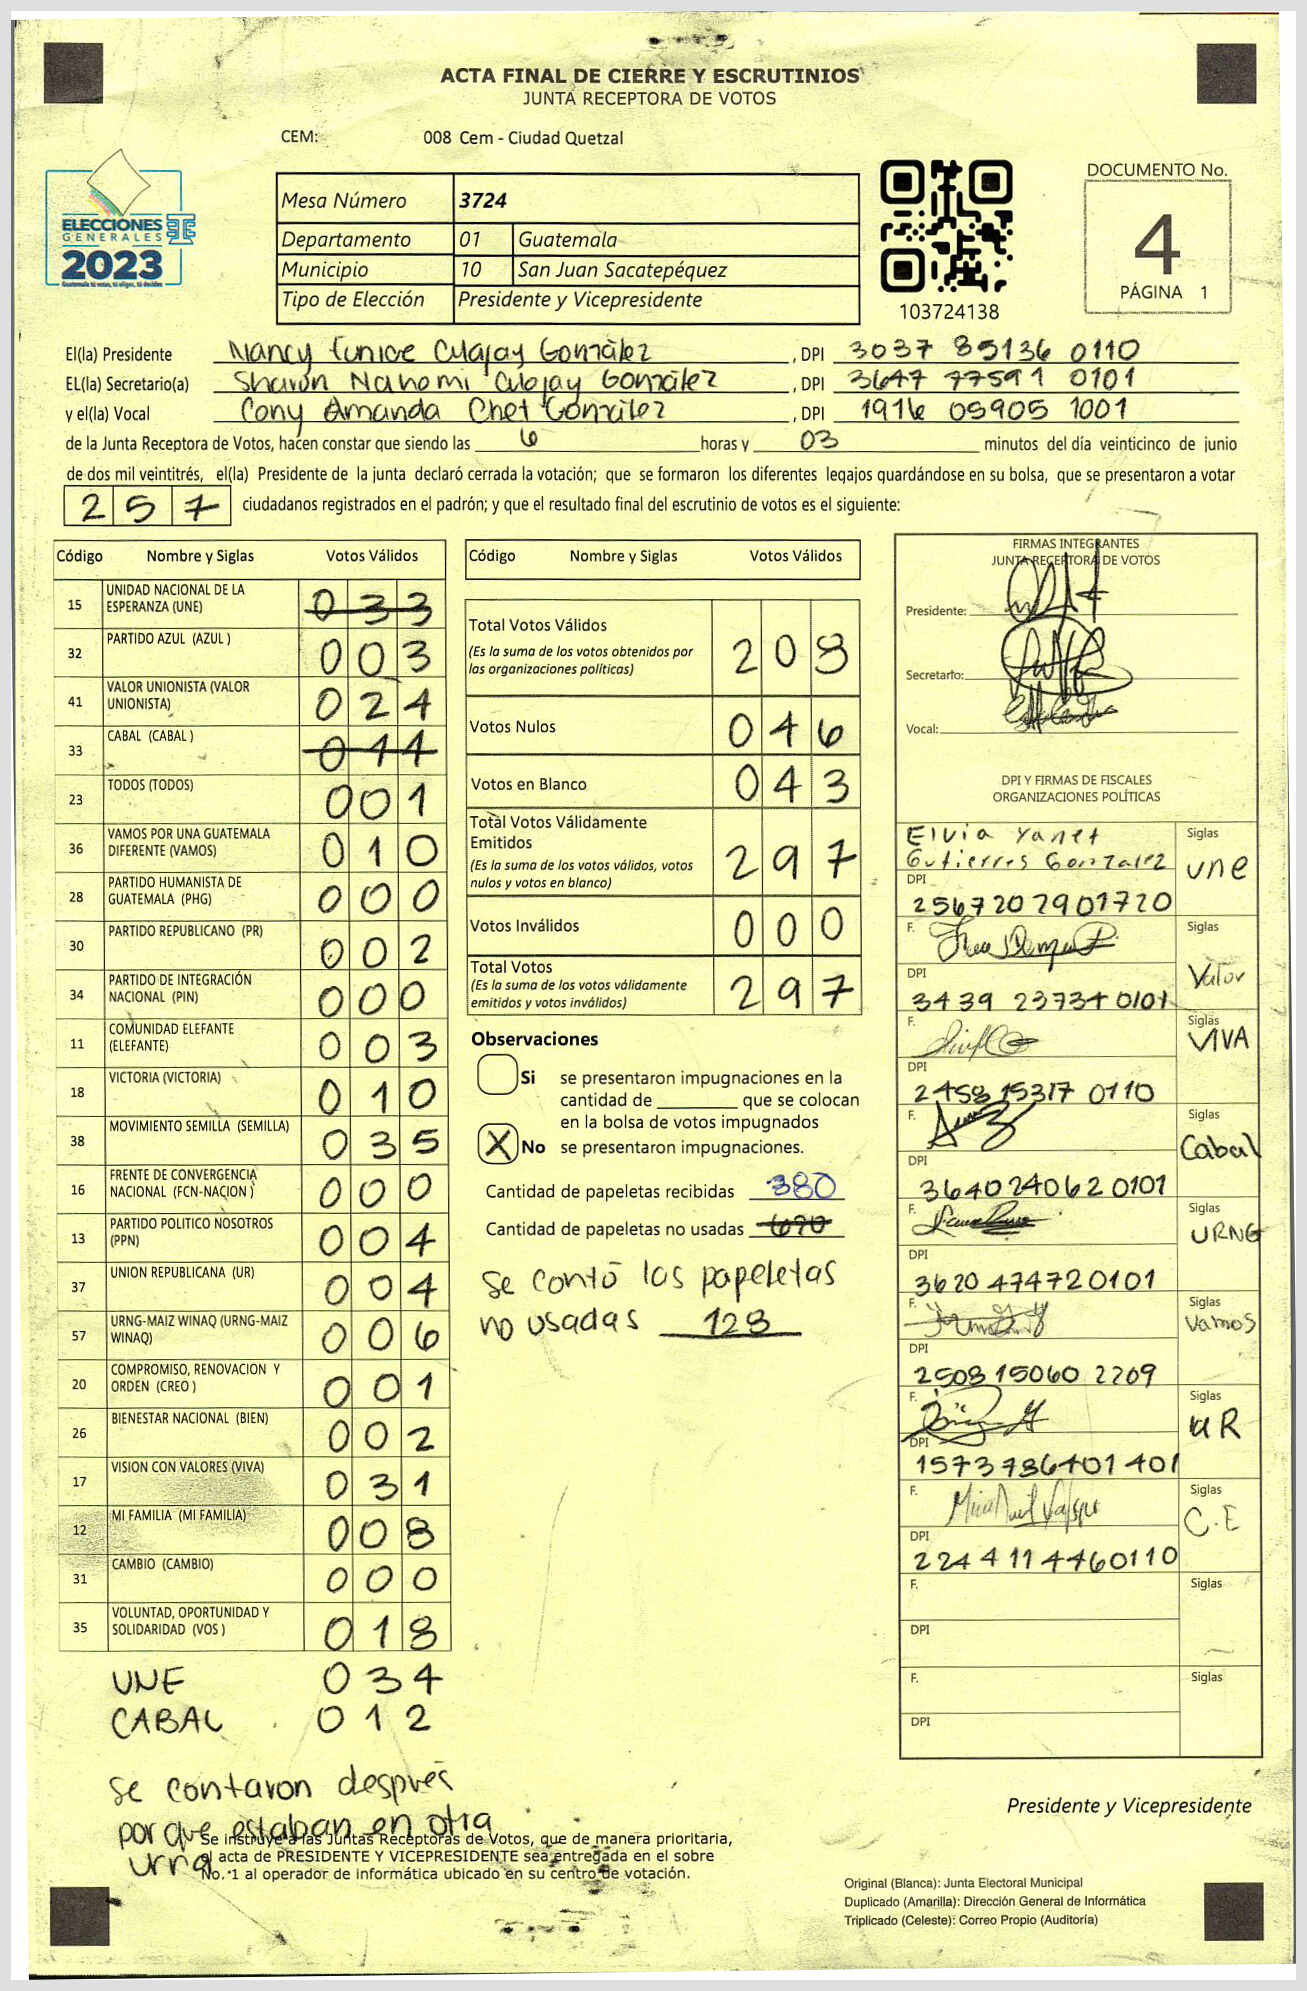 ACTA FINAL DE CIERRE Y ESCRUTINIOS
JUNTA RECEPTORA DE VOTOS
CEM: 008 Cem - Ciudad Quetzal
ELECCIONES
GENERALES
2023
Mesa Número 3724
Departamento 01 Guatemala
Municipio 10 San Juan Sacatepéquez
Tipo de Elección Presidente y Vicepresidente
103724138
DOCUMENTO No.
4
PÁGINA 1
El(la) Presidente Nancy Eunice Culajay González, DPI 3037 85136 0110
EL(la) Secretario(a) Sharon Nahomi Culajay González, DPI 3647 77591 0101
y el(la) Vocal Cony Amanda Chet González, DPI 1916 05905 1001
de la Junta Receptora de Votos, hacen constar que siendo las 6 horas y 03 minutos del día veinticinco de junio
de dos mil veintitrés, el(la) Presidente de la junta declaró cerrada la votación; que se formaron los diferentes legajos guardándose en su bolsa, que se presentaron a votar
257 ciudadanos registrados en el padrón; y que el resultado final del escrutinio de votos es el siguiente:
Código Nombre y Siglas Votos Válidos
15 UNIDAD NACIONAL DE LA ESPERANZA (UNE) 033
32 PARTIDO AZUL (AZUL ) 003
41 VALOR UNIONISTA (VALOR UNIONISTA) 024
33 CABAL (CABAL ) 011
23 TODOS (TODOS) 001
36 VAMOS POR UNA GUATEMALA DIFERENTE (VAMOS) 010
28 PARTIDO HUMANISTA DE GUATEMALA (PHG) 000
30 PARTIDO REPUBLICANO (PR) 002
34 PARTIDO DE INTEGRACIÓN NACIONAL (PIN) 000
11 COMUNIDAD ELEFANTE (ELEFANTE) 003
18 VICTORIA (VICTORIA) 010
38 MOVIMIENTO SEMILLA (SEMILLA) 035
16 FRENTE DE CONVERGENCIA NACIONAL (FCN-NACION ) 000
13 PARTIDO POLITICO NOSOTROS (PPN) 004
37 UNION REPUBLICANA (UR) 004
57 URNG-MAIZ WINAQ (URNG-MAIZ WINAQ) 006
20 COMPROMISO, RENOVACION Y ORDEN (CREO ) 001
26 BIENESTAR NACIONAL (BIEN) 002
17 VISION CON VALORES (VIVA) 031
12 MI FAMILIA (MI FAMILIA) 008
31 CAMBIO (CAMBIO) 000
35 VOLUNTAD, OPORTUNIDAD Y SOLIDARIDAD (VOS ) 018
UNE 034
CABAL 012
Se contaron después
porque estaban en otra
urna
Código Nombre y Siglas Votos Válidos
Total Votos Válidos 208
(Es la suma de los votos obtenidos por
las organizaciones políticas)
Votos Nulos 046
Votos en Blanco 043
Total Votos Válidamente
Emitidos 297
(Es la suma de los votos válidos, votos
nulos y votos en blanco)
Votos Inválidos 000
Total Votos 297
(Es la suma de los votos válidamente
emitidos y votos inválidos)
Observaciones
Si se presentaron impugnaciones en la
cantidad de ________ que se colocan
en la bolsa de votos impugnados
X No se presentaron impugnaciones.
Cantidad de papeletas recibidas 380
Cantidad de papeletas no usadas
Se contó las papeletas
no usadas 128
FIRMAS INTEGRANTES
JUNTA RECEPTORA DE VOTOS
Presidente:
Secretarío:
Vocal:
DPI Y FIRMAS DE FISCALES
ORGANIZACIONES POLÍTICAS
Elvia Yanet
Gutierres Gonzalez
Siglas
une
DPI
2567207901720
F.
Siglas
Valor
DPI
3439 23734 0101
F.
Siglas
VIVA
DPI
2458 15317 0110
F.
Siglas
Cabal
DPI
3640240620101
F.
Siglas
URNG
DPI
3620474720101
F.
Siglas
Vamos
DPI
2508 15060 2209
F.
Siglas
UR
DPI
1573786401401
F.
Siglas
C.E
DPI
2244114460110
F.
Siglas
DPI
F.
Siglas
DPI
Presidente y Vicepresidente
Se instruye a las Juntas Receptoras de Votos, que de manera prioritaria,
el acta de PRESIDENTE Y VICEPRESIDENTE sea entregada en el sobre
No. 1 al operador de informática ubicado en su centro de votación.
Original (Blanca): Junta Electoral Municipal
Duplicado (Amarilla): Dirección General de Informática
Triplicado (Celeste): Correo Propio (Auditoría)